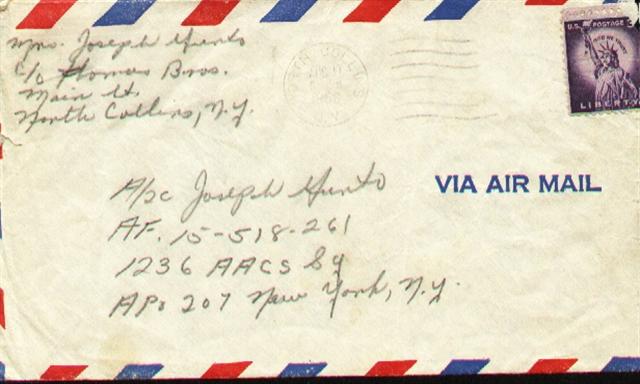 Mrs. Joseph Gunto
c/o Thomas Bros.
Main St.
North Collins, N.Y.
U.S. POSTAGE 3
IN GOD WE TRUST
LIBERTY
VIA AIR MAIL
A/2c Joseph Gunto
AF. 15-518-261
1236 AACS Sq
APO 207 New York, N.Y.